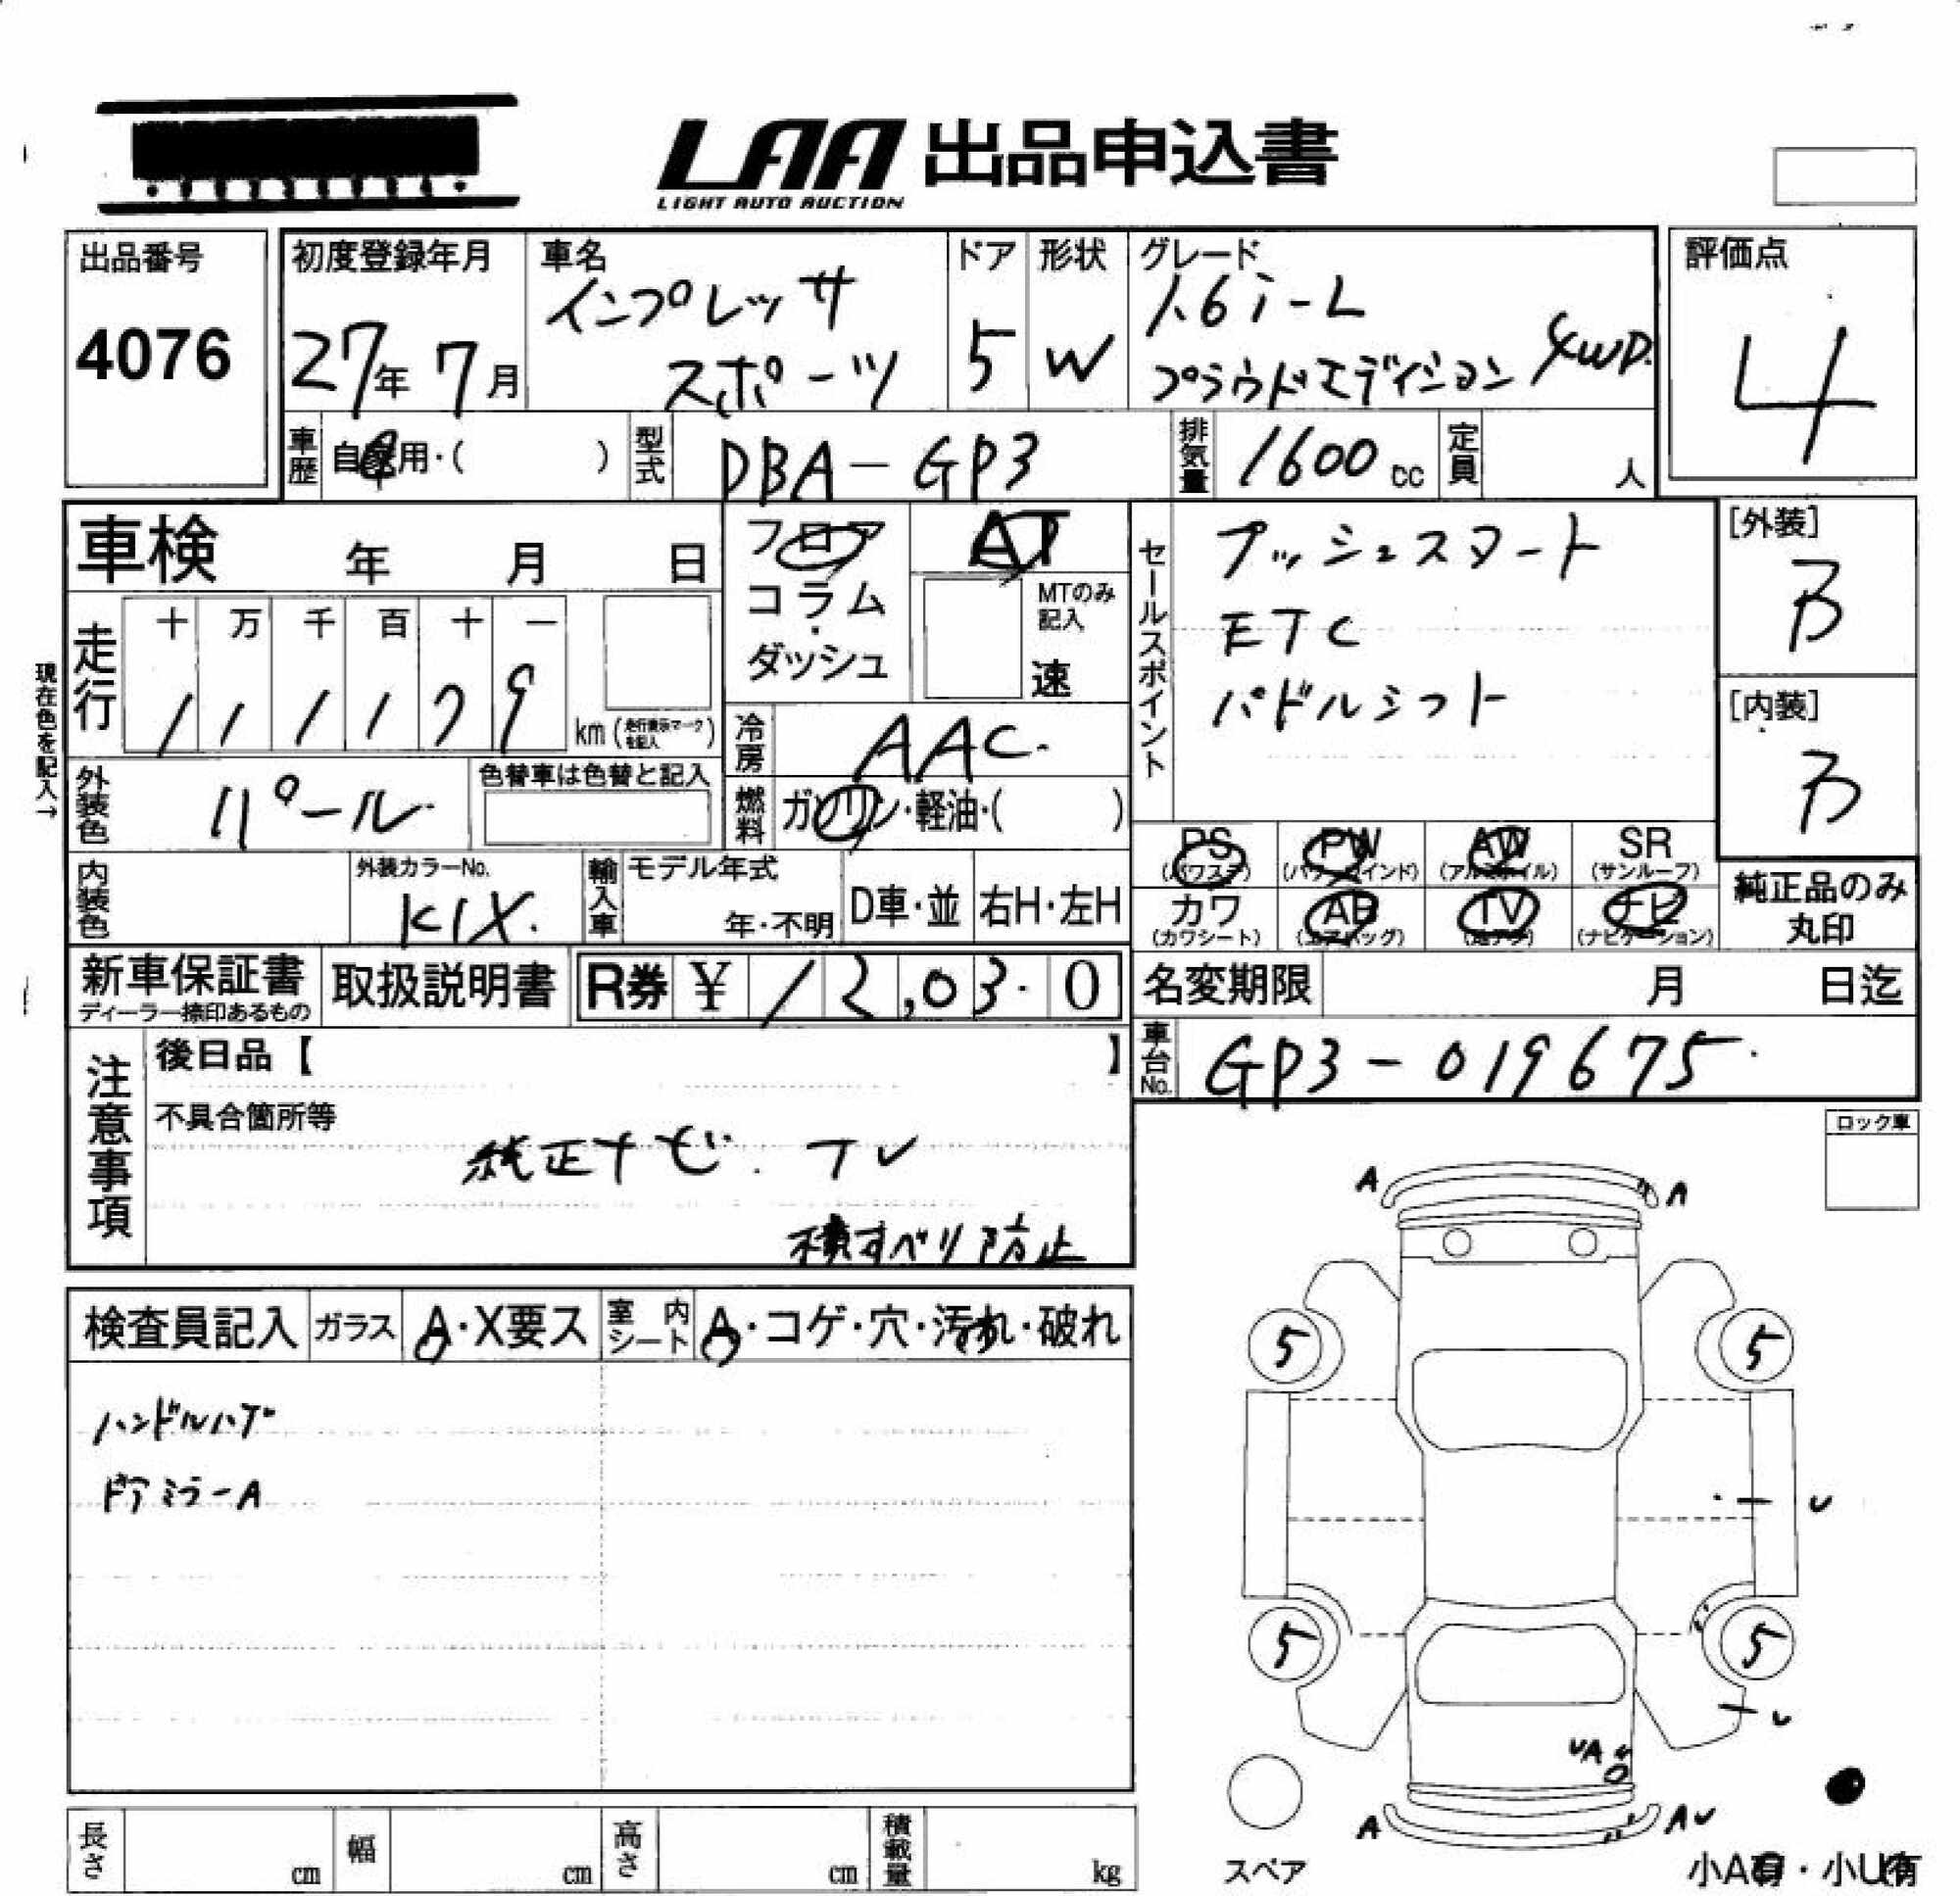 LAA 出品申込書
LIGHT AUTO AUCTION
出品番号
4076
初度登録年月
27年 7月
車名
インプレッサ
スポーツ
ドア
5
形状
W
グレード
1.6i-L
プラウドエディション 4WD.
評価点
4
車歴
自家用・( )
型式
DBA-GP3
排気量
1600 cc
定員
人
車検 年 月 日
走行
十 万 千 百 十 一
1 1 1 1 7 9
km (走行表示マークを記入)
現在色を記入→
フロア
コラム
・
ダッシュ
AT
MTのみ
記入
速
冷房
AAC.
燃料
ガソリン・軽油・( )
外装色
パール
色替車は色替と記入
内装色
外装カラーNo.
K1X.
輸入車
モデル年式
年・不明
D車・並
右H・左H
セールスポイント
プッシュスタート
ETC
パドルシフト
[外装]
B
[内装]
B
PS
(パワステ)
PW
(パワーウインド)
AW
(アルミホイル)
SR
(サンルーフ)
カワ
(カワシート)
AB
(エアバッグ)
TV
(地デジ)
ナビ
(ナビゲーション)
純正品のみ
丸印
新車保証書
ディーラー捺印あるもの
取扱説明書
R券 ¥ 12,030
名変期限 月 日迄
車台No.
GP3-019675
注意事項
後日品【 】
不具合箇所等
純正ナビ. TV
横すべり防止
ロック車
検査員記入
ガラス
A・X要ス
室内シート
A・コゲ・穴・汚れ・破れ
ハンドルハゲ
ドアミラーA
A
A
5
5
U
5
5
U
UA
A
AU
スペア
小A有・小U有
長さ cm
幅 cm
高さ cm
積載量 kg